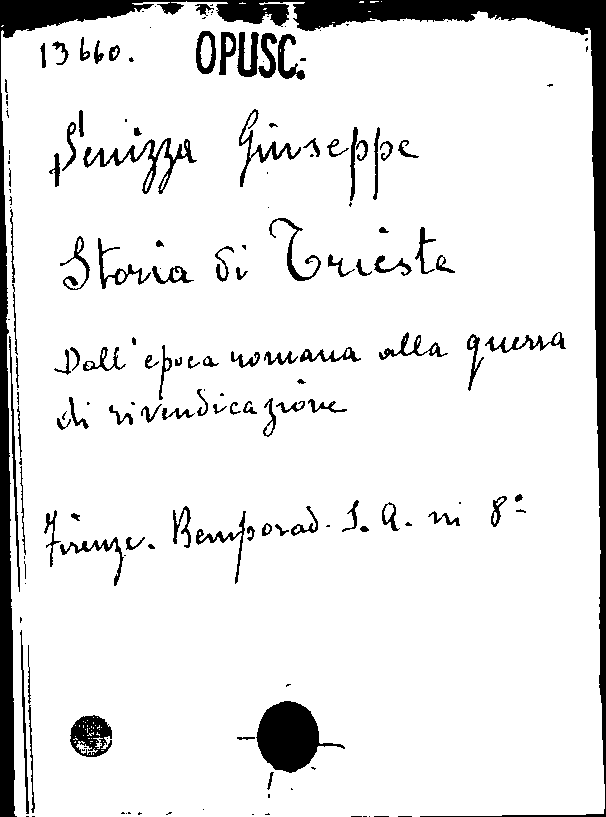 13660. OPUSC.
Senizza Giuseppe
Storia di Trieste
Dall'epoca romana alla guerra
di rivendicazione
Firenze. Bemporad. S. A. in 8°